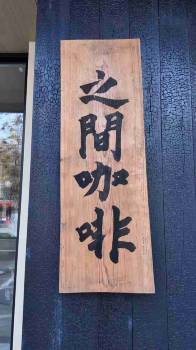 之間咖啡